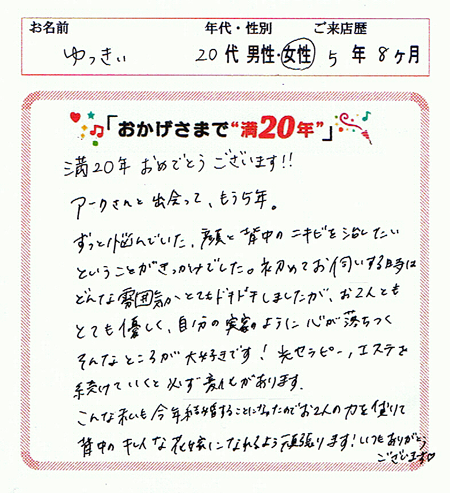 お名前 年代・性別 ご来店歴
ゆっきぃ 20代 男性・女性 5年8ヶ月
「おかげさまで“満20年”」
満20年 おめでとうございます!!
アークさんと出会って、もう5年。
ずっと悩んでいた、顔と背中のニキビを治したい
ということがきっかけでした。初めてお伺いする時は
どんな雰囲気か、とてもドキドキしましたが、お2人とも
とても優しく、自分の実家のように心が落ちつく
そんなところが大好きです！光セラピー、エステを
続けていくと必ず変化があります。
こんな私も今年結婚することになったのでお2人の力を借りて
背中のキレイな花嫁になれるよう頑張ります！いつもありがとう
ございます♡